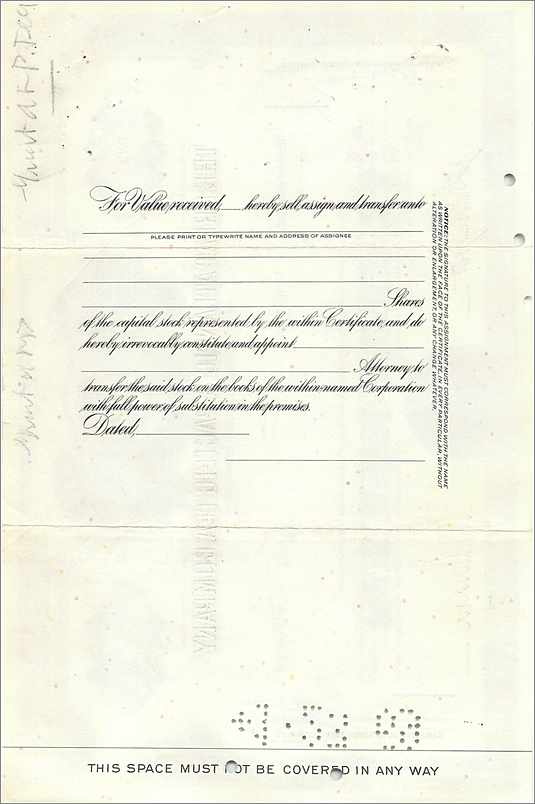 For Value received, ___ hereby sell, assign, and transfer unto
PLEASE PRINT OR TYPEWRITE NAME AND ADDRESS OF ASSIGNEE
Shares
of the capital stock represented by the within Certificate, and do
hereby irrevocably constitute and appoint
Attorney to
transfer the said stock on the books of the within named Corporation
with full power of substitution in the premises.
Dated,
NOTICE: THE SIGNATURE TO THIS ASSIGNMENT MUST CORRESPOND WITH THE NAME
AS WRITTEN UPON THE FACE OF THE CERTIFICATE, IN EVERY PARTICULAR, WITHOUT
ALTERATION OR ENLARGEMENT, OR ANY CHANGE WHATEVER.
THIS SPACE MUST NOT BE COVERED IN ANY WAY